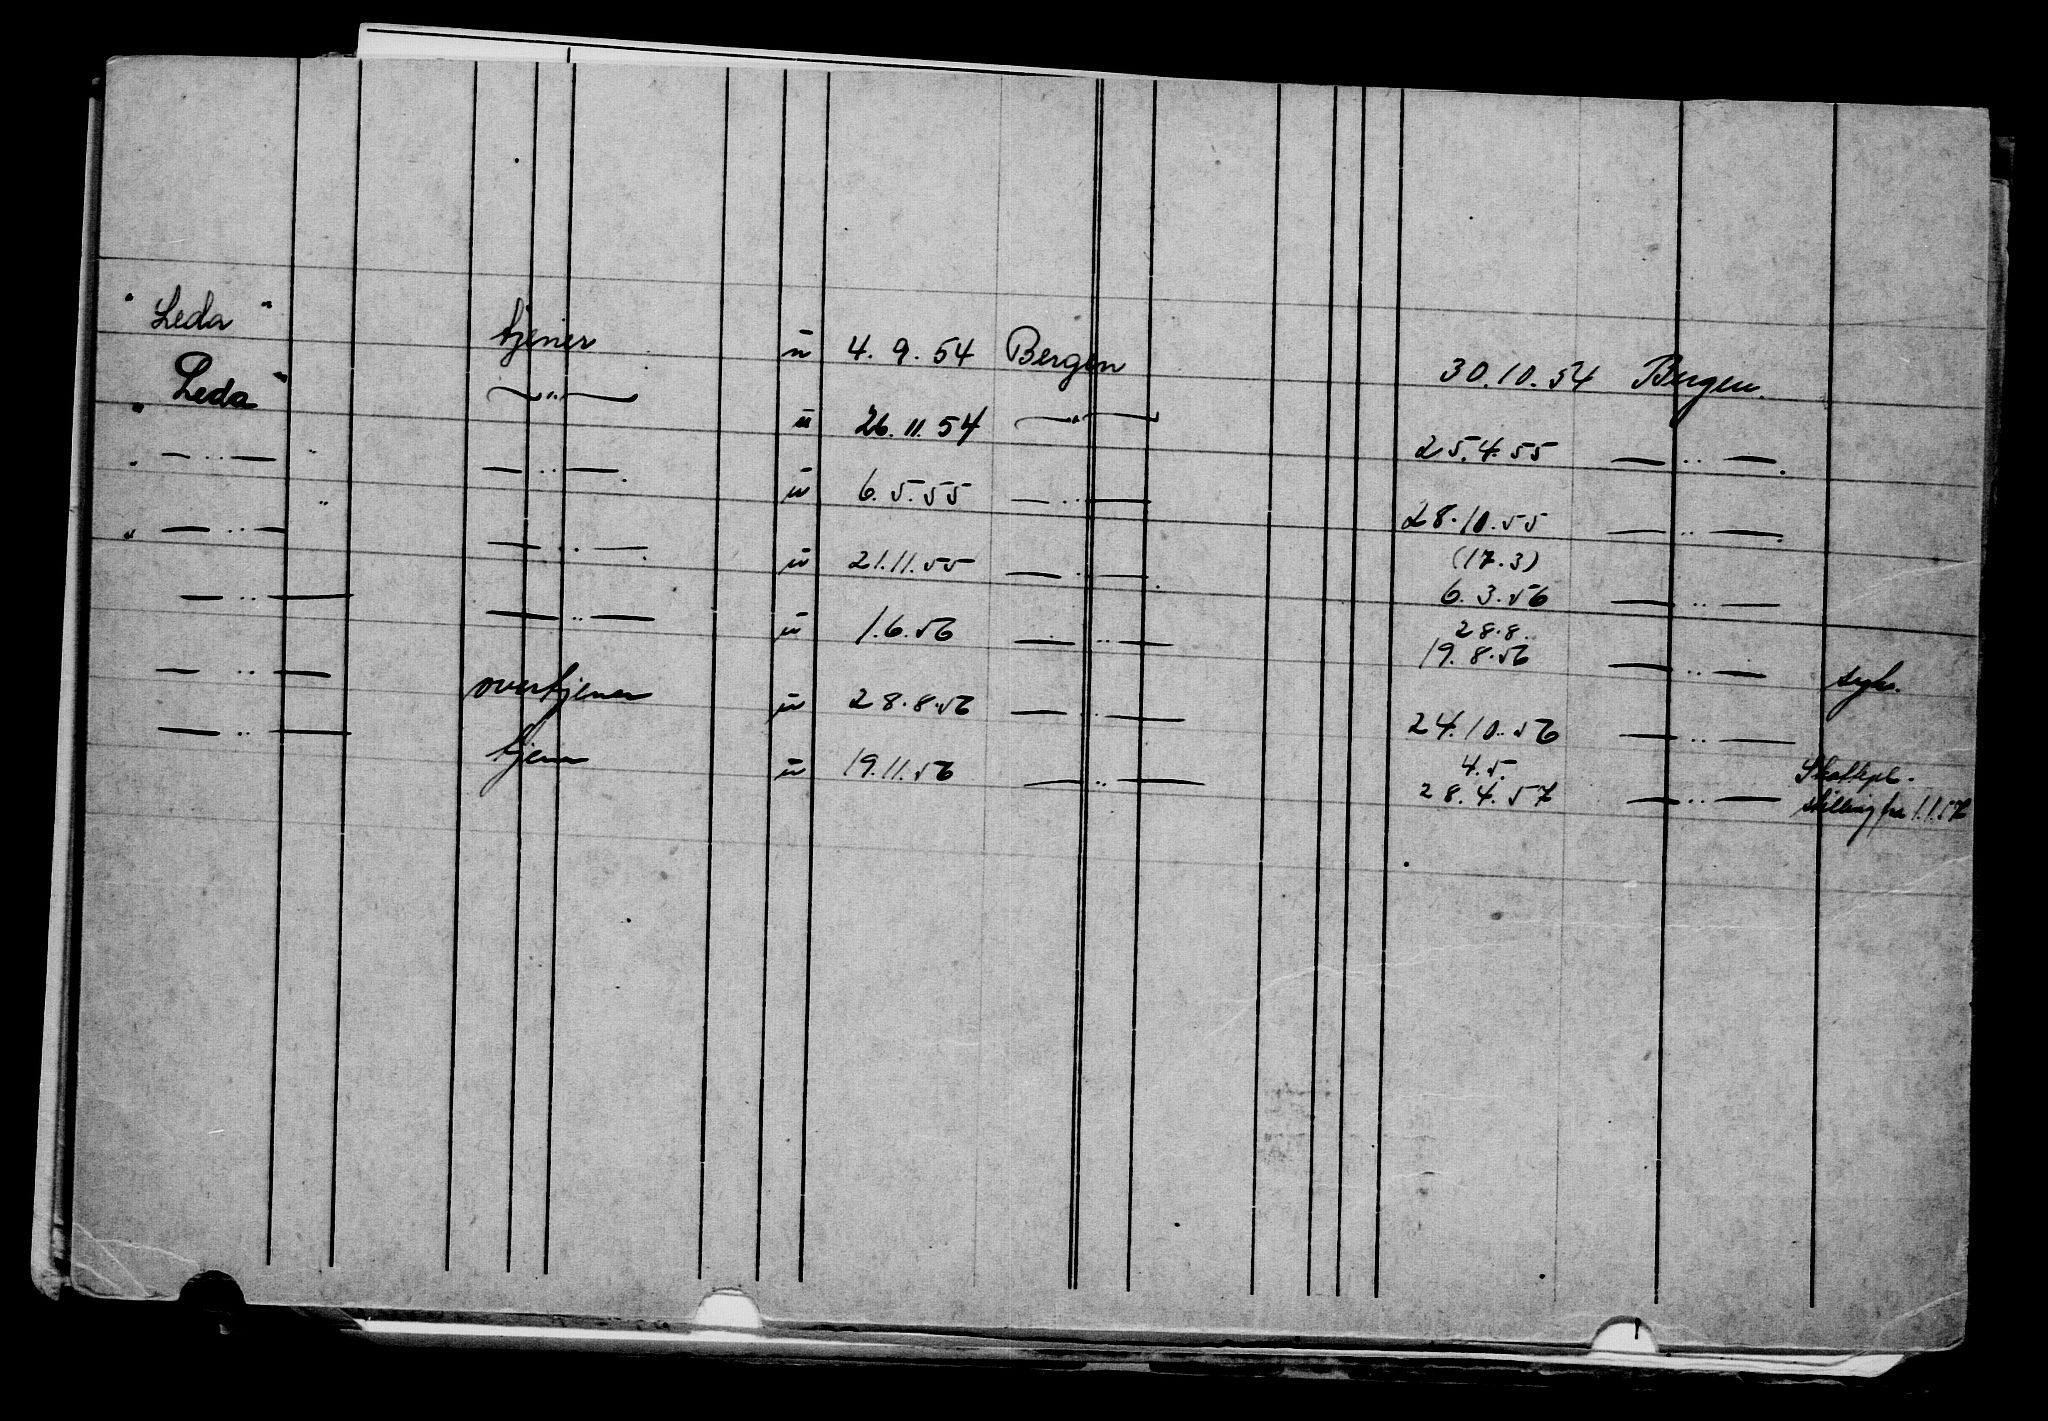 "Leda" tjener ü 4.9.54 Bergen 30.10.54 Bergen.
"Leda" —"— ü 26.11.54 —"— 25.4.55 —"—.
"—"—" —"—. ü 6.5.55 —"— 28.10.55 —"—.
"—"—" —"—. ü 21.11.55 —"—. (17.3) 6.3.56 —"—
—"— —"— ü 1.6.56 —"— 28.8. 19.8.56 —"— syk.
—"— overtjener ü 28.8.56 —"— 24.10.56 —"—
—"— tjener ü 19.11.56 —"— 4.5. 28.4.57 —"— Skattepl.
stilling fra 1.1.57